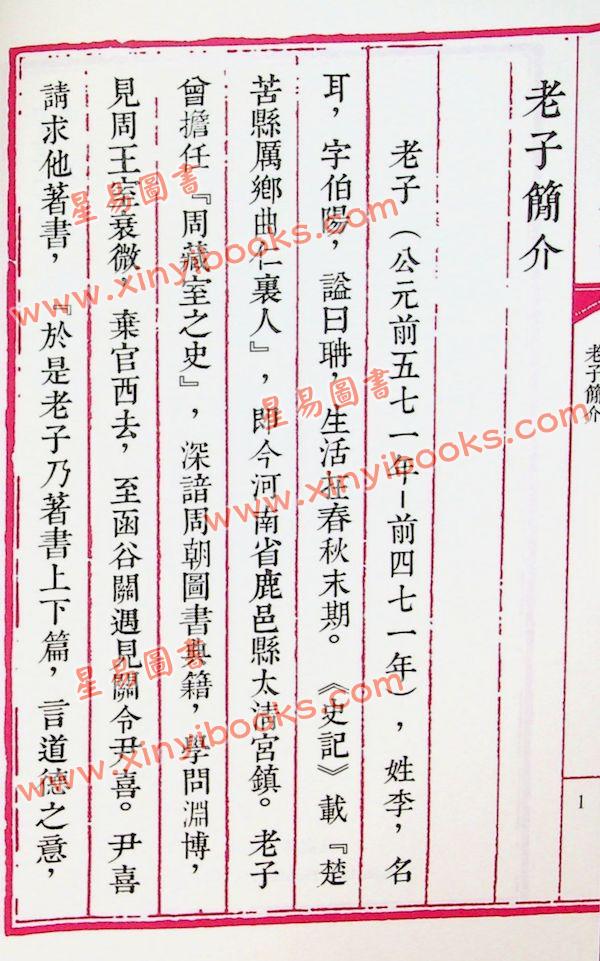 老子簡介
老子（公元前五七一年-前四七一年），姓李，名
耳，字伯陽，謚曰聃，生活在春秋末期。《史記》載『楚
苦縣厲鄉曲仁裏人』，即今河南省鹿邑縣太清宮鎮。老子
曾擔任『周藏室之史』，深諳周朝圖書典籍，學問淵博，
見周王室衰微，棄官西去，至函谷關遇見關令尹喜。尹喜
請求他著書，『於是老子乃著書上下篇，言道德之意，
老子簡介
1
星易圖書
www.xinyibooks.com
星易圖書
www.xinyibooks.com
星易圖書
www.xinyibooks.com